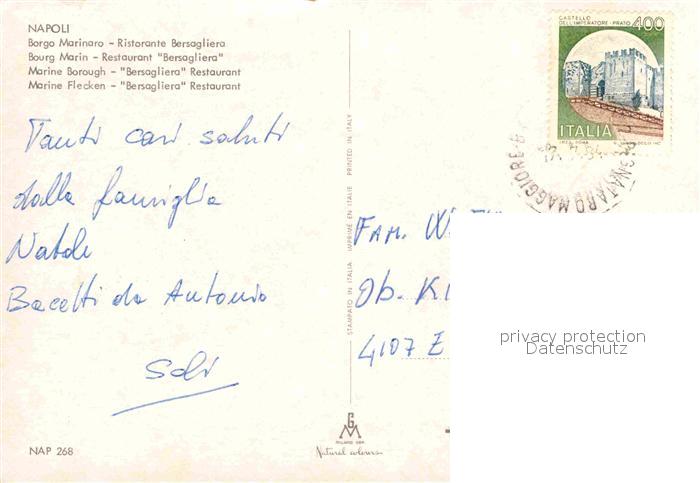 NAPOLI
Borgo Marinaro - Ristorante Bersagliera
Bourg Marin - Restaurant "Bersagliera"
Marine Borough - "Bersagliera" Restaurant
Marine Flecken - "Bersagliera" Restaurant
CASTELLO
DELL'IMPERATORE · PRATO
400
ITALIA
Tanti cari saluti
dalla famiglia
Natale
Bacetti da Antonio
STAMPATO IN ITALIA IMPRIMÉ EN ITALIE PRINTED IN ITALY
FAM.
Ob.
4107 E
privacy protection
Datenschutz
NAP 268
GM
MILANO
Natural colours